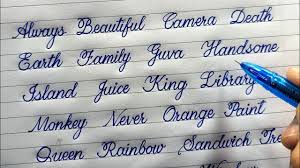 Always Beautiful Camera Death
Earth Family Guva Handsome
Island Juice King Library
Monkey Never Orange Paint
Queen Rainbow Sandwich Tree